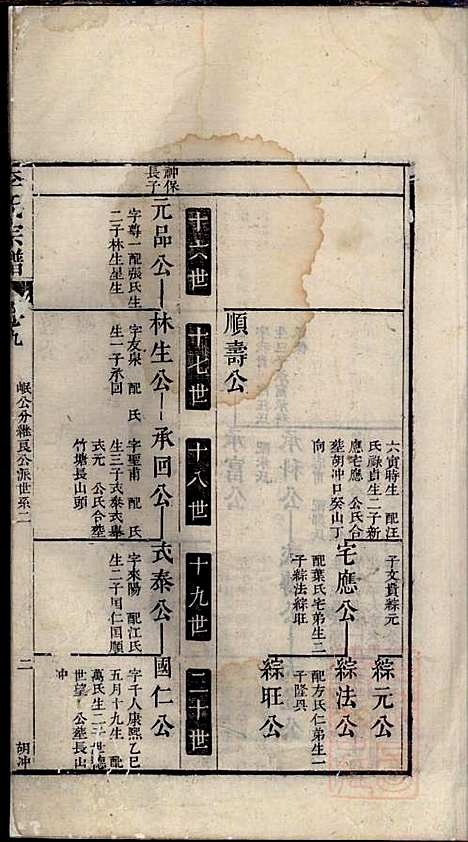 六寅時生　配汪
氏　祿貞生二子新
應宅應　公氏合
塟胡冲口癸山丁
向
子文貴綜元
綜元公
宅應公
配葉氏宅弟生二
子綜法綜旺
綜法公
配方氏仁弟生一
子隆興
綜旺公
順壽公
十六世
十七世
十八世
十九世
二十世
神保
長子
元品公
字尊一配張氏生
二子林生星生
林生公
字友泉　配　氏
生一子承回
承回公
字聖甫　配　氏
生三子式泰式舉
式元　公氏合塟
竹塘長山頭
式泰公
字來陽　配江氏
生二子国仁国順
國仁公
字千人康熙乙巳
五月十九生　配
萬氏生二子世德
世望　公塟長山
冲
李氏宗譜
卷九
岷公分継良公派世系二
二
胡冲